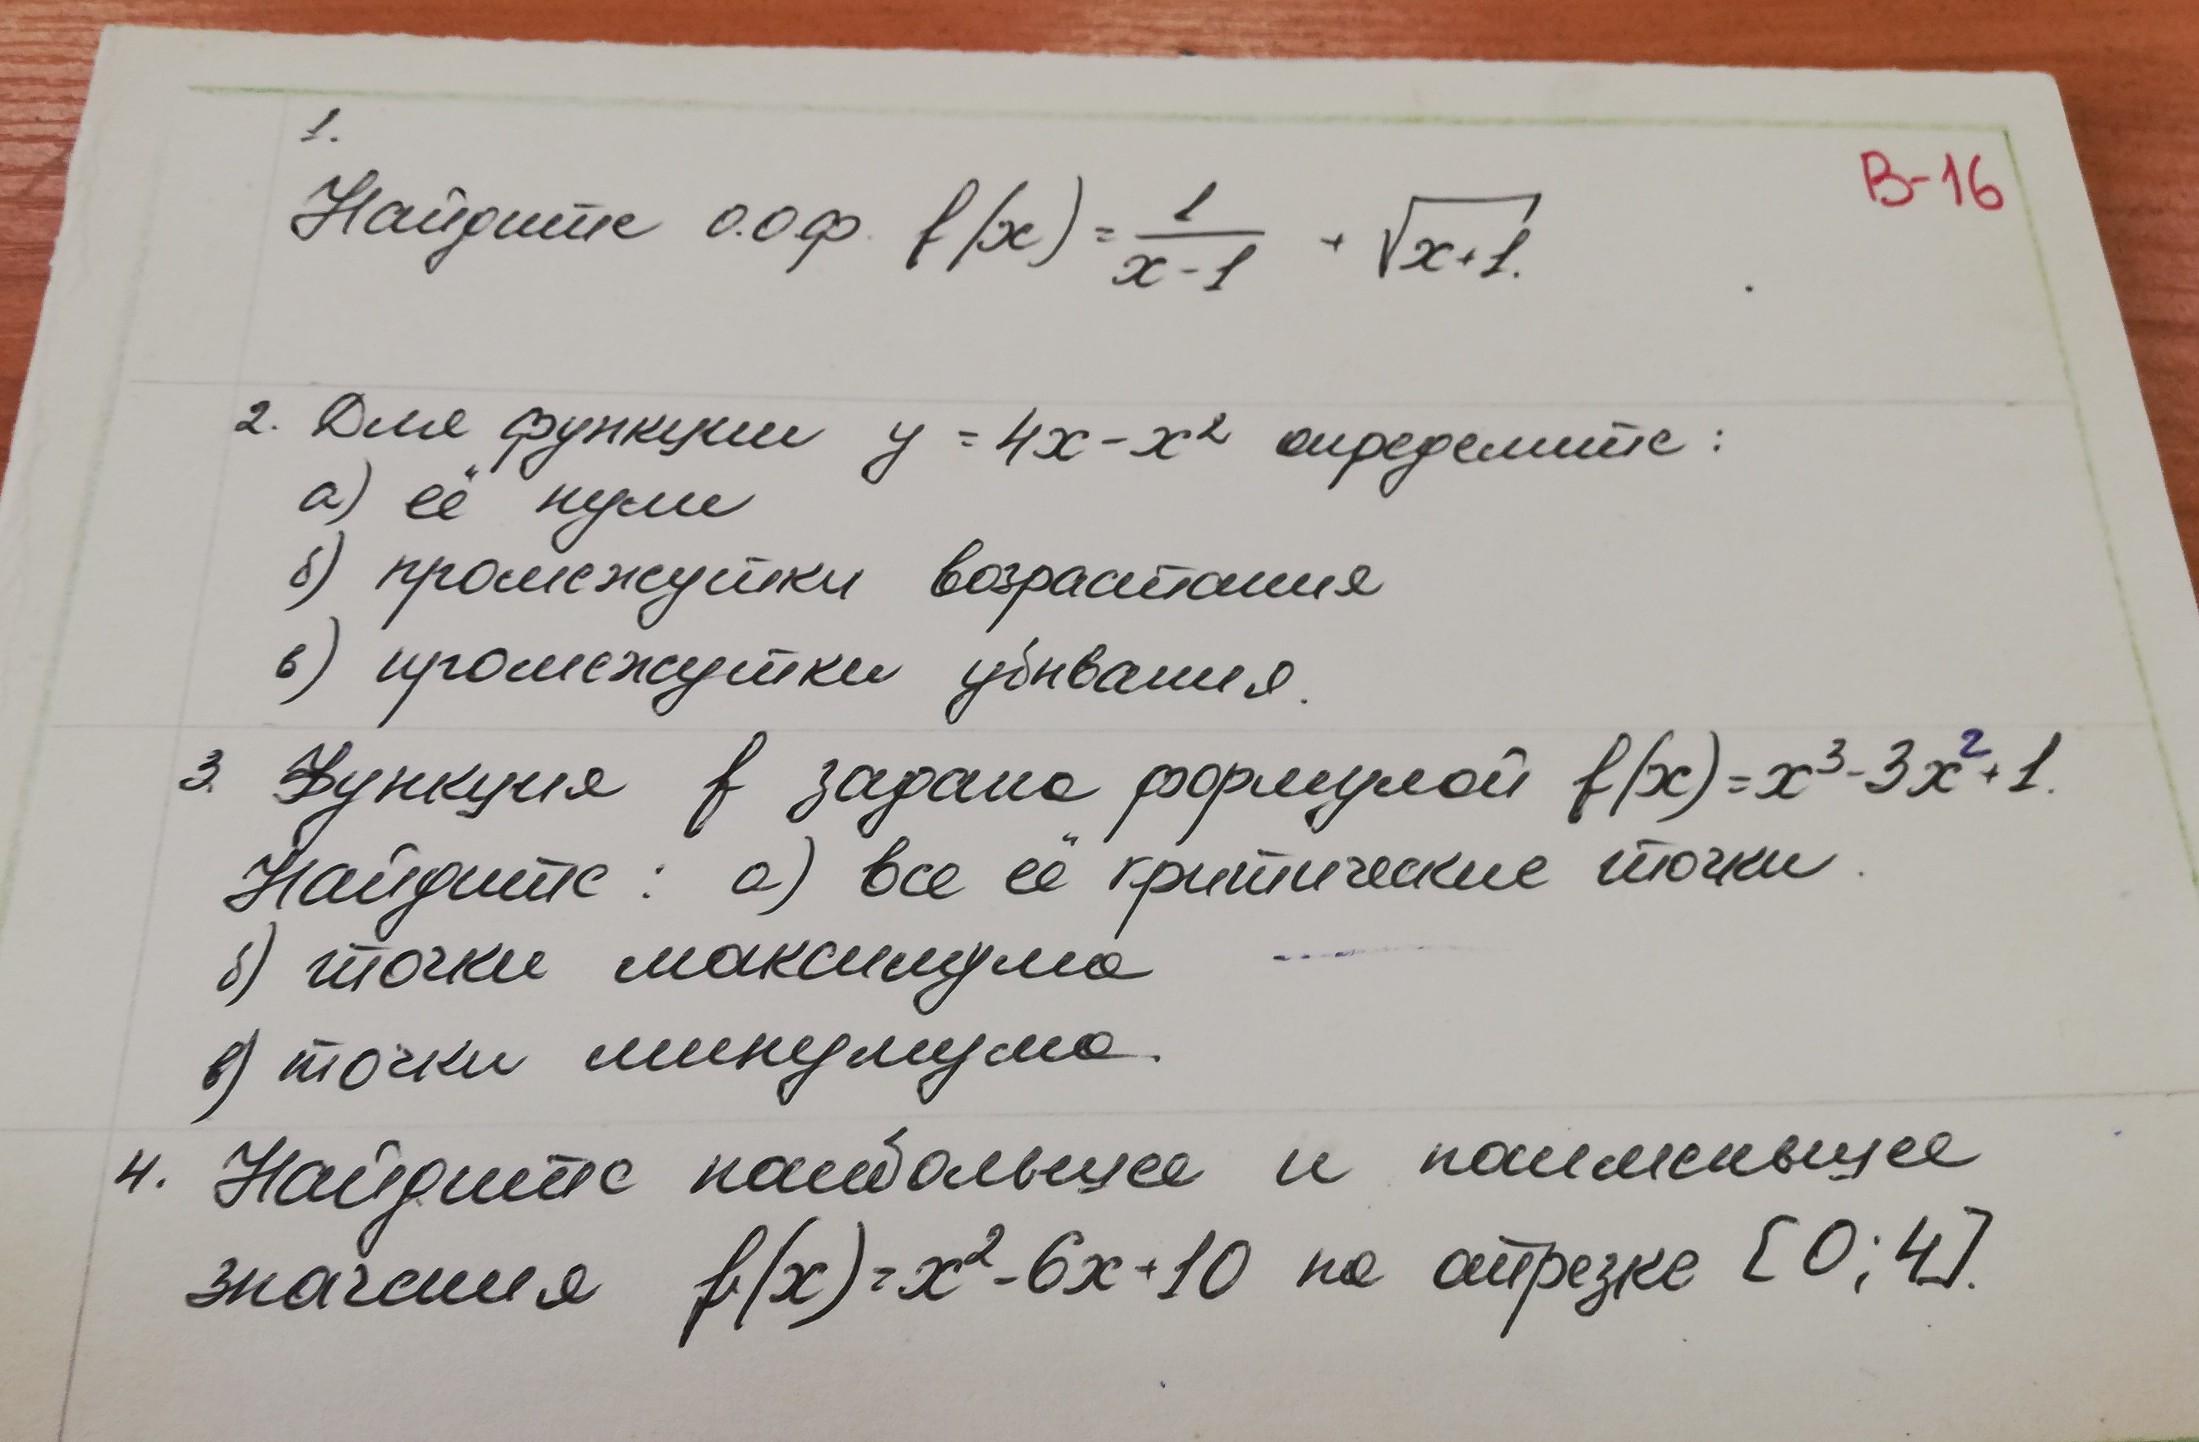 1.
В-16
Найдите о.оф. f(x) = 1/(x-1) + √(x+1).
2. Для функции y = 4x - x² определите:
а) её нули
б) промежутки возрастания
в) промежутки убывания.
3. Функция f задана формулой f(x) = x³ - 3x² + 1.
Найдите: а) все её критические точки.
б) точки максимума
в) точки минимума.
4. Найдите наибольшее и наименьшее
значения f(x) = x² - 6x + 10 на отрезке [0; 4].